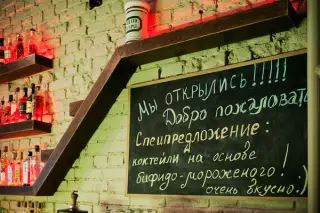 Мы открылись!!!!!
Добро пожаловать
Спецпредложение:
коктейли на основе
бифидо-мороженого!
очень вкусно:)